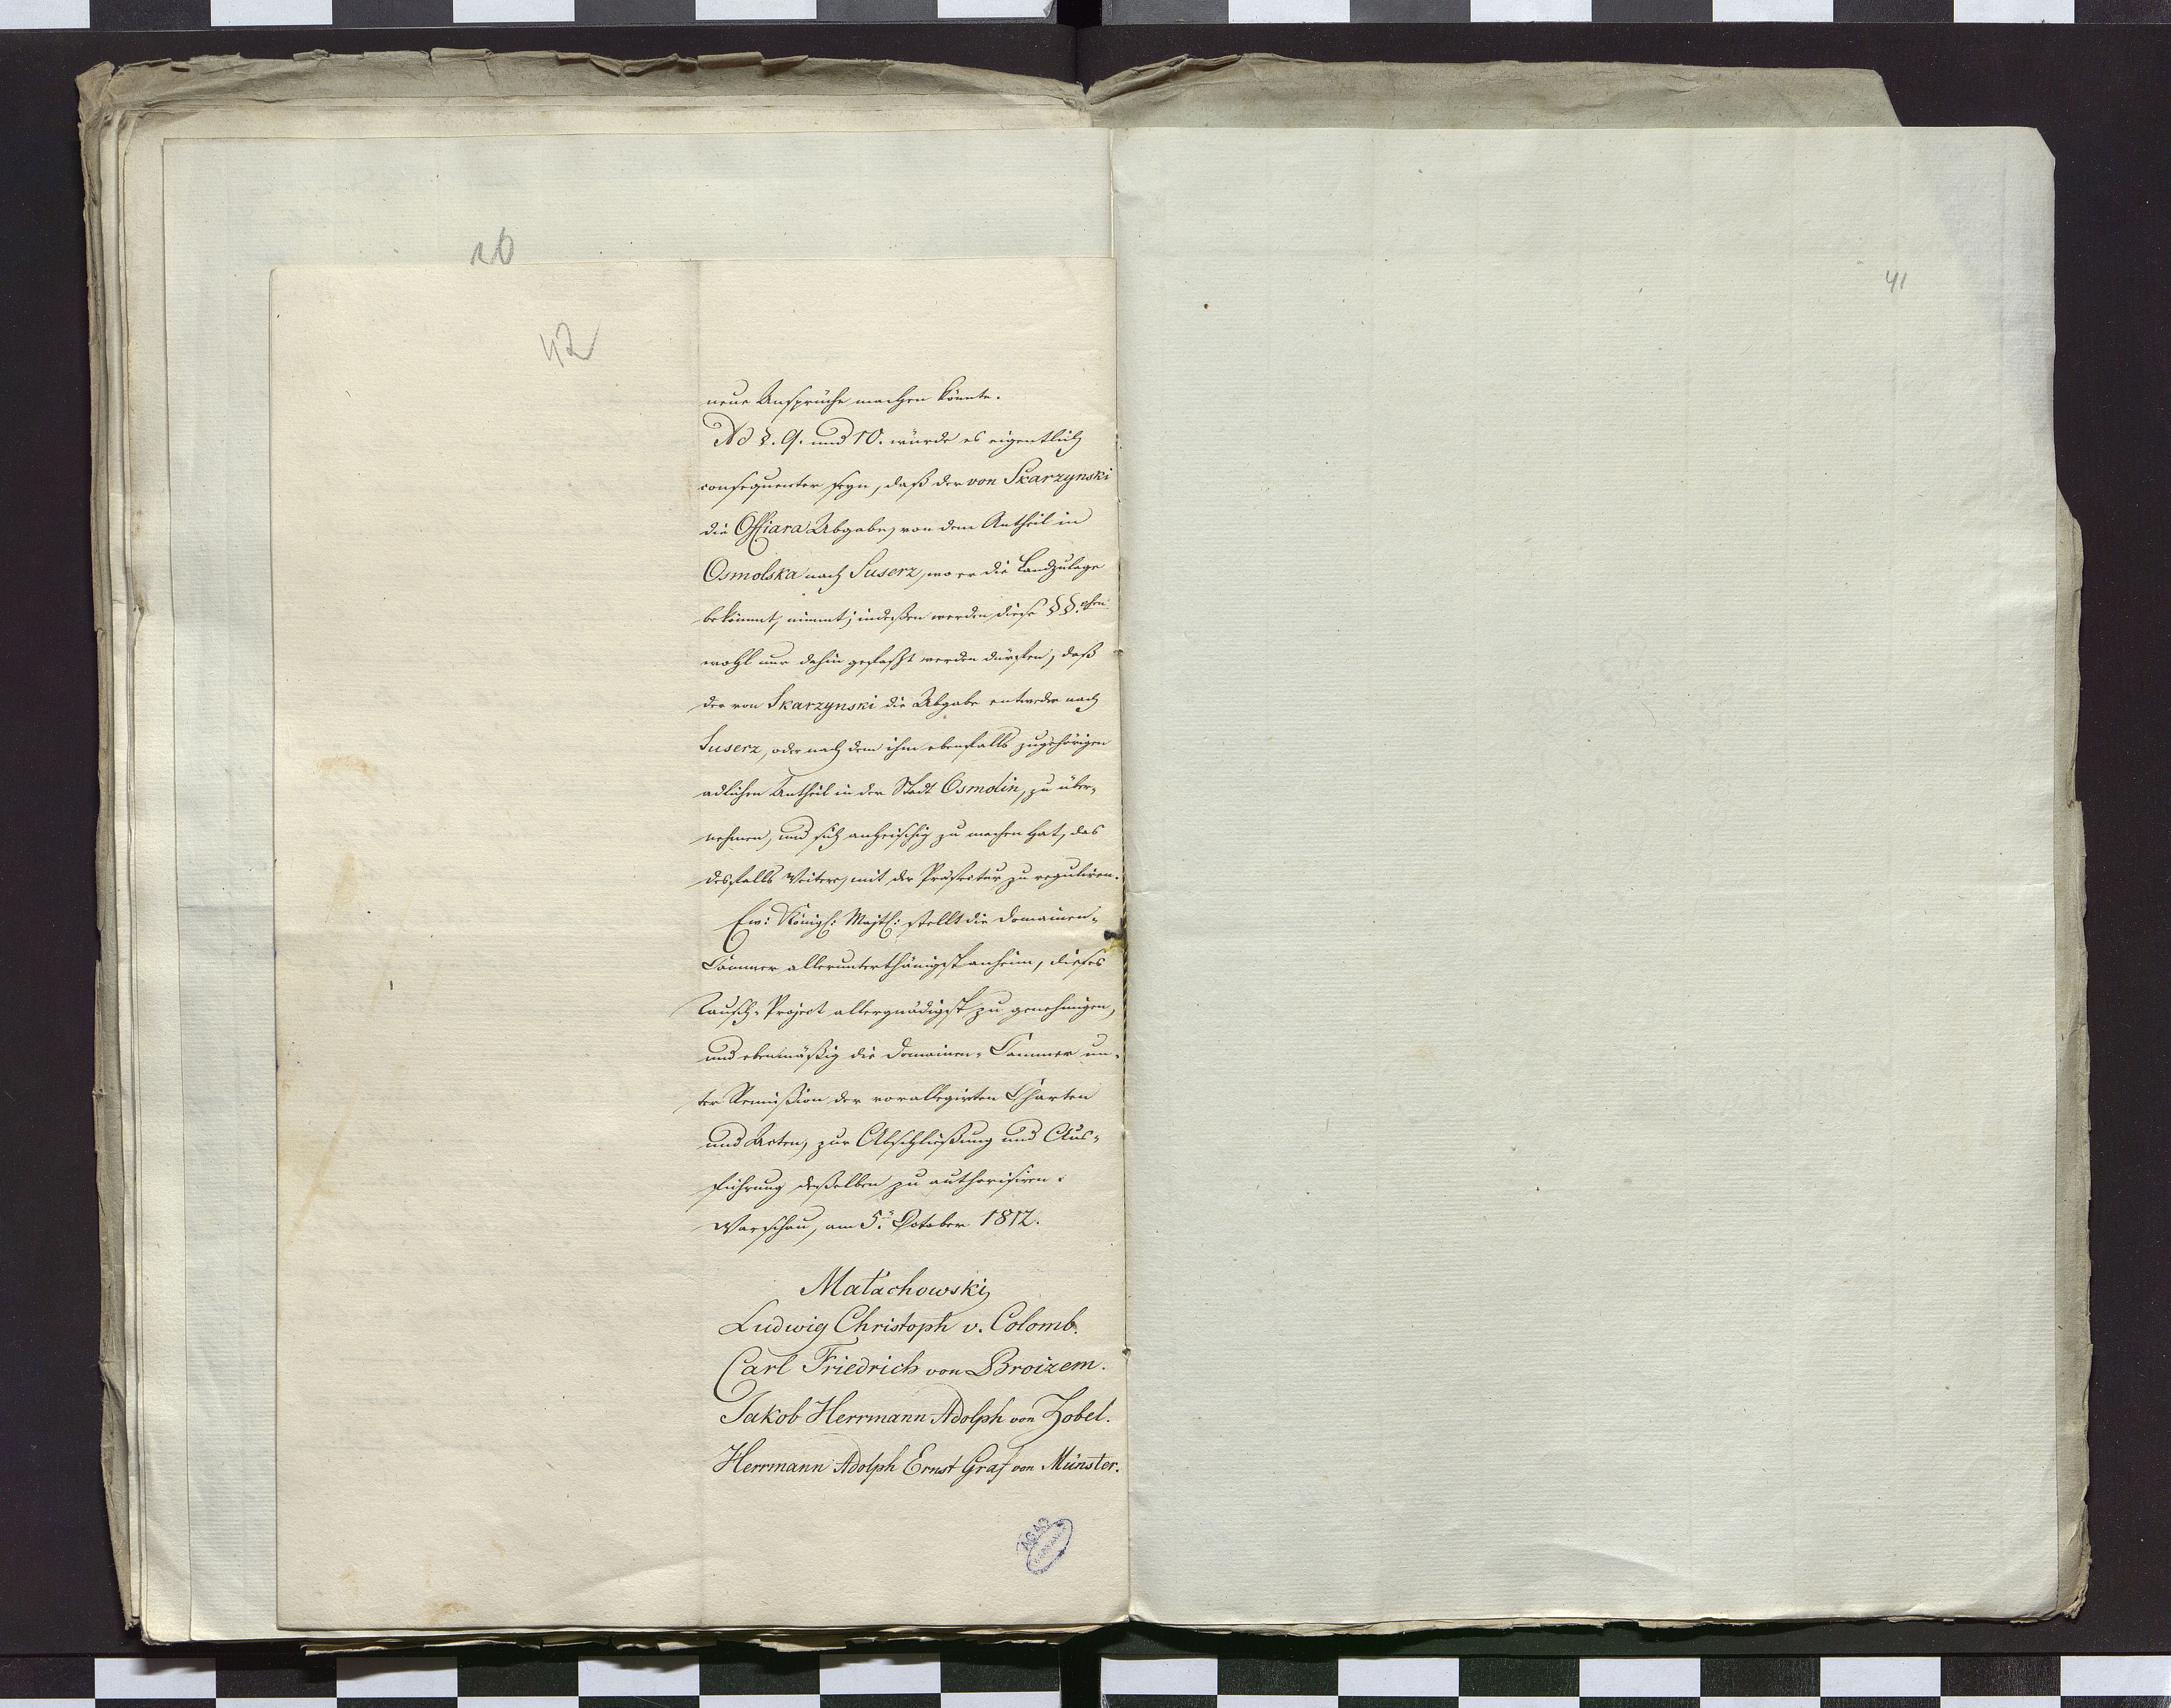 26
42
neue Ansprüche machen könnte.
Ad §. 9. und 10. würde es eigentlich
consequenter seyn, daß der von Skarzynski
die Offiara Abgabe, von dem Antheil in
Osmolska nach Suserz, wo er die Landzulage
bekömmt, nimmt; indeßen werden diese §§.phen
wohl nur dahin gefaßt werden dürfen, daß
der von Skarzynski die Abgabe entweder nach
Suserz, oder nach dem ihm ebenfalls zugehörigen
adlichen Antheil in der Stadt Osmolin, zu über-
nehmen, und sich anheischig zu machen hat, das
desfalls Weitere, mit der Präfectur zu reguliren.
Ew: Königl: Majtl: stellt die Domainen-
Cammer allerunterthänigst anheim, dieses
Tausch-Project allergnädigst zu genehmigen,
und ebenmäßig die Domainen-Cammer un-
ter Remission der vorallegirten Charten
und Acten, zur Abschließung und Aus-
führung deßelben zu authorisiren.
Warschau, am 5. October 1812.
Małachowski
Ludwig Christoph v. Colomb.
Carl Friedrich von Broizem.
Jakob Herrmann Adolph von Zobel.
Herrmann Adolph Ernst Graf von Münster.
AGAD
41